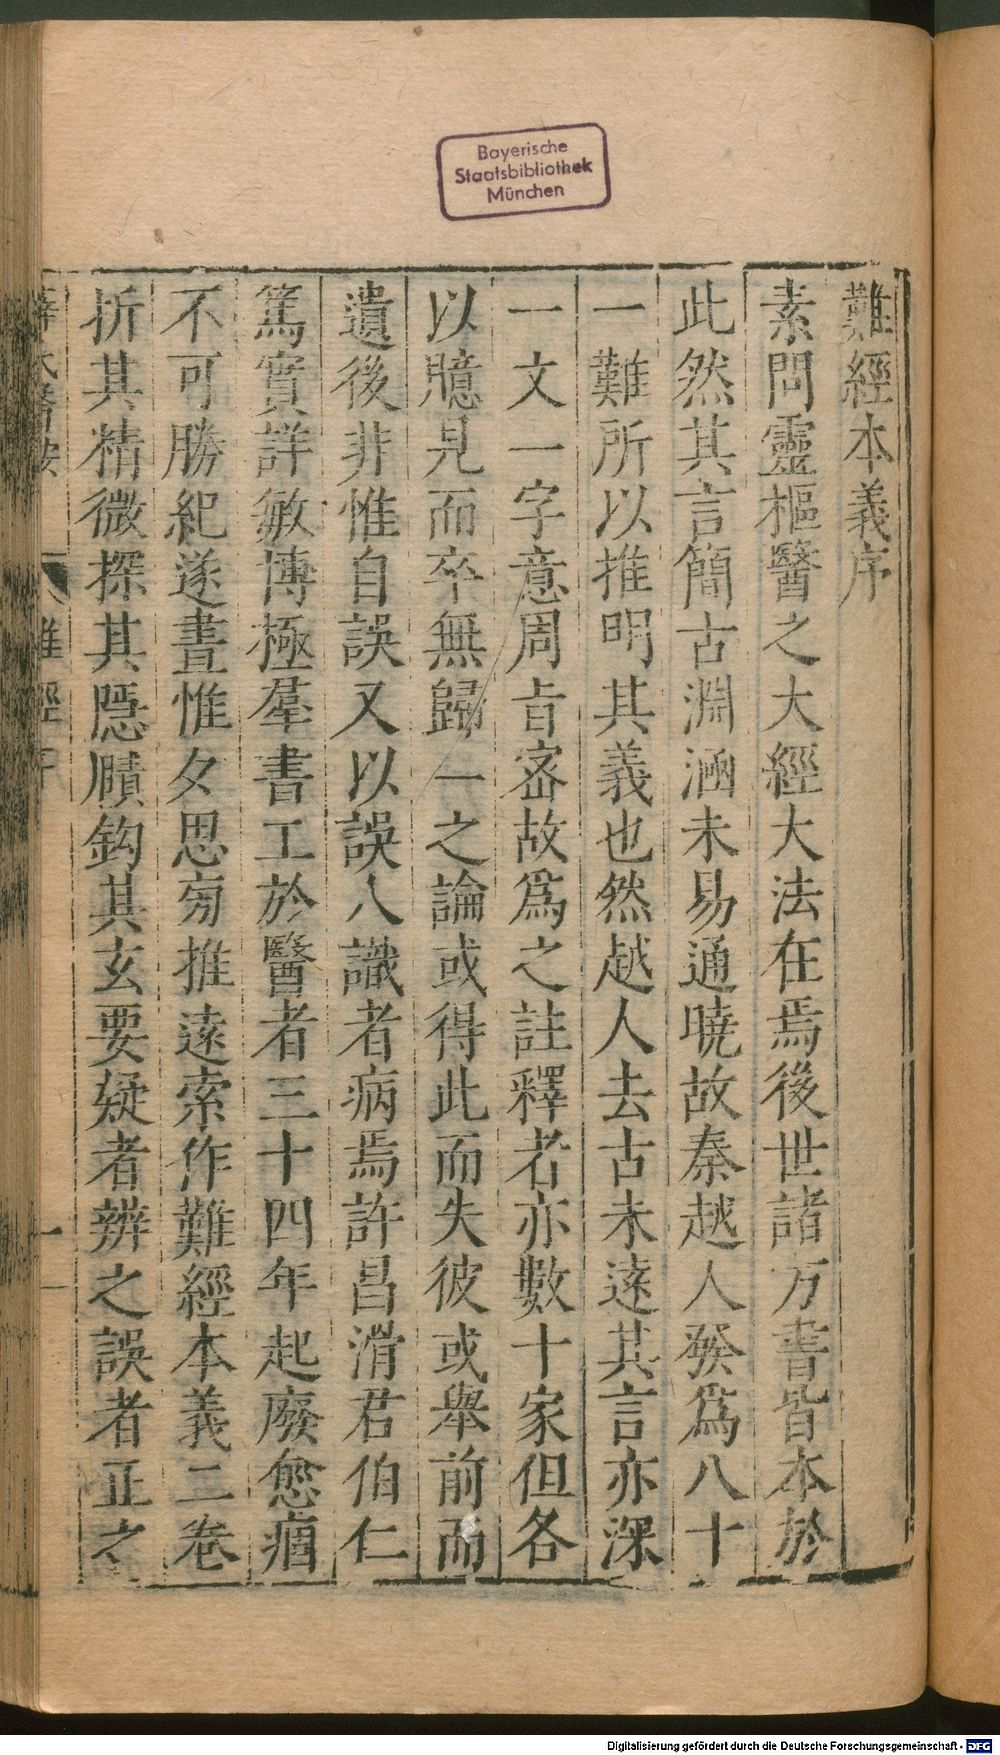 Bayerische
Staatsbibliothek
München
難經本義序
素問靈樞醫之大經大法在焉後世諸方書皆本於
此然其言簡古淵涵未易通曉故秦越人發爲八十
一難所以推明其義也然越人去古未遠其言亦深
一文一字意周旨密故爲之註釋者亦數十家但各
以臆見而卒無歸一之論或得此而失彼或舉前而
遺後非惟自誤又以誤人識者病焉許昌滑君伯仁
篤實詳敏博極羣書工於醫者三十四年起廢愈痼
不可勝紀遂晝惟夕思旁推遠索作難經本義二卷
折其精微探其隱賾鈎其玄要疑者辨之誤者正之
難經序
一
Digitalisierung gefördert durch die Deutsche Forschungsgemeinschaft - DFG